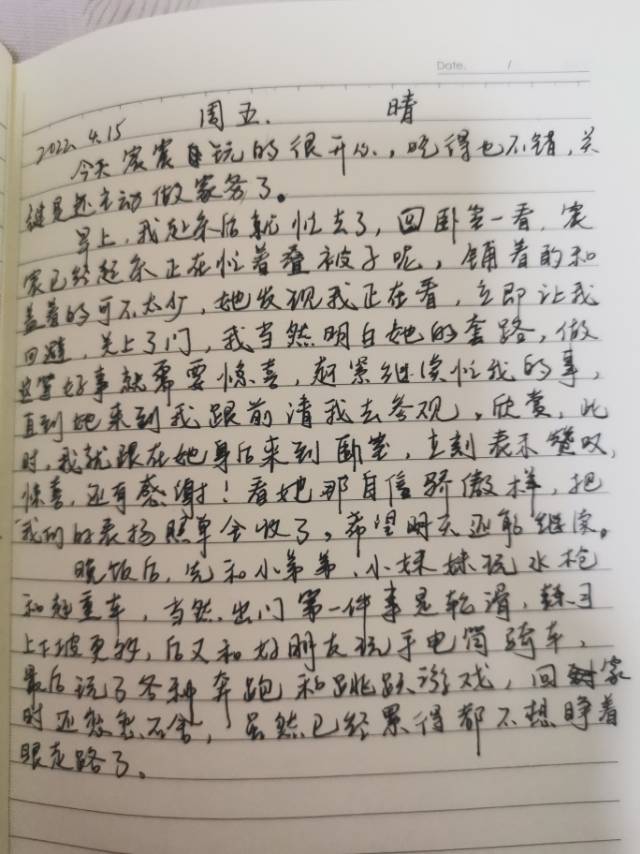 Date. /
2022.4.15 周五. 晴
今天宸宸玩的很开心,吃得也不错,关
键是还主动做家务了。
早上,我起来后就忙去了,回卧室一看,宸
宸已经起来正在忙着叠被子呢,铺着的和
盖着的可不太少,她发现我正在看,立即让我
回避,关上了门,我当然明白她的套路,做
这等好事就需要惊喜,赶紧继续忙我的事,
直到她来到我跟前请我去参观,欣赏,此
时,我就跟在她身后来到卧室,立刻表示赞叹,
惊喜,还有感谢!看她那自信骄傲样,把
我们的表扬照单全收了。希望明天还能继续。
晚饭后,先和小弟弟、小妹妹玩水枪
和超重车,当然出门第一件事是轮滑,练习
上下坡更多,后又和好朋友玩手电筒骑车,
最后玩了各种奔跑和跳跃游戏,回家
时还恋恋不舍,虽然已经累得都不想睁着
眼走路了。